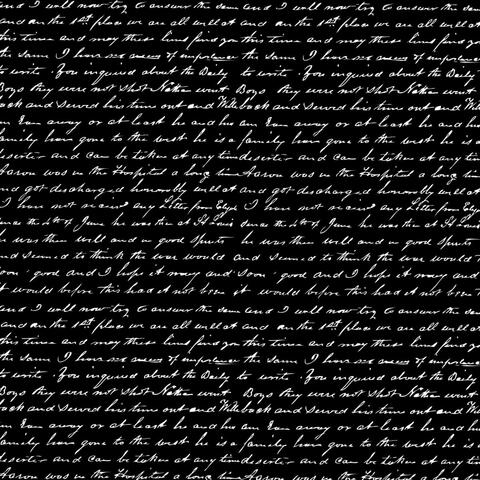 and I will now try to answer the same and I will now try to answer the sa
and on the 1st place we are all well at and on the 1st place we are all well a
this time and may these lines find you this time and may these lines find yo
the same I have no news of importance the same I have no news of importance
to write. You inquired about the Daily to write. You inquired about the Daily
Boys they were not shot Nathan went Boys they were not shot Nathan went
back and served his time out and Will back and served his time out and Will
away or at last he and his away or at last he and his
family have gone to the west. he is a family have gone to the west. he is
deserter and can be taken at any time deserter and can be taken at any tim
Aaron was in the Hospital a long time Aaron was in the Hospital a long tim
and got discharged honorably well at and got discharged honorably well at
I have not received any Letter from I have not received any Letter from
Since the 4th of June he was then at St Louis Since the 4th of June he was then at St Louis
he was then well and in good spirits he was then well and in good spirits
and seemed to think the war would and seemed to think the war would
soon good and I hope it may and soon good and I hope it may and
it would before this had it not been it would before this had it not been
and I will now try to answer the same and I will now try to answer the sa
and on the 1st place we are all well at and on the 1st place we are all well a
this time and may these lines find you this time and may these lines find yo
the same I have no news of importance the same I have no news of importance
to write. You inquired about the Daily to write. You inquired about the Daily
Boys they were not shot Nathan went Boys they were not shot Nathan went
back and served his time out and Will back and served his time out and Will
away or at last he and his away or at last he and his
family have gone to the west. he is a family have gone to the west. he is
deserter and can be taken at any time deserter and can be taken at any tim
Aaron was in the Hospital a long time Aaron was in the Hospital a long tim